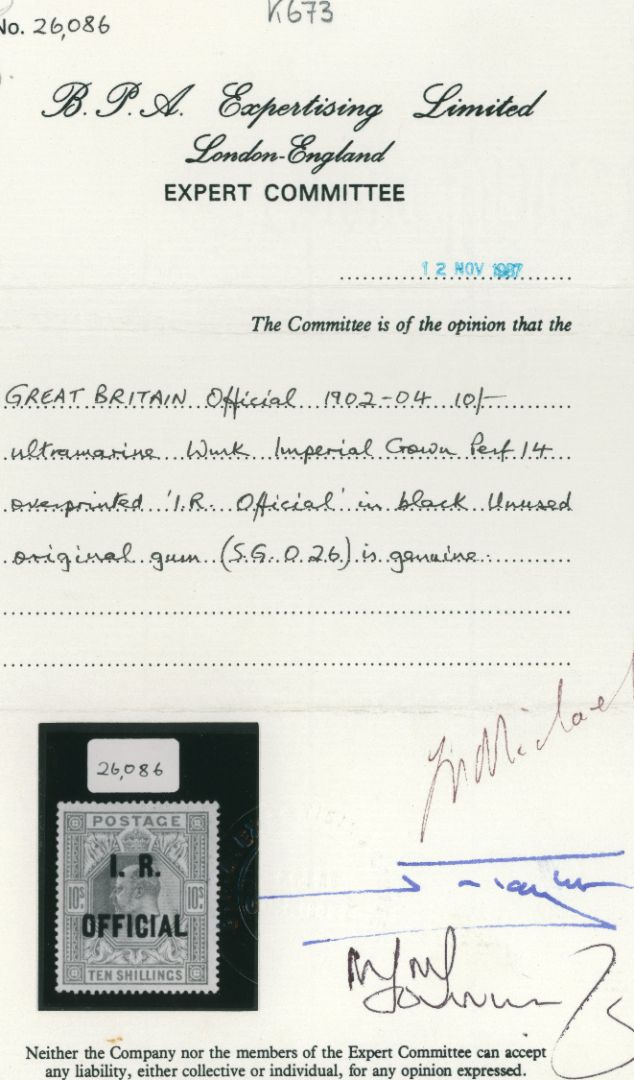 No. 26,086
K673
B. P. A. Expertising Limited
London-England
EXPERT COMMITTEE
12 NOV 1987
The Committee is of the opinion that the
GREAT BRITAIN Official 1902-04 10/-
ultramarine Wmk Imperial Crown Perf 14
overprinted 'I.R. Official' in black Unused
original gum (S.G. O.26) is genuine.
26,086
POSTAGE
I. R.
10S 10S
OFFICIAL
TEN SHILLINGS
Neither the Company nor the members of the Expert Committee can accept
any liability, either collective or individual, for any opinion expressed.